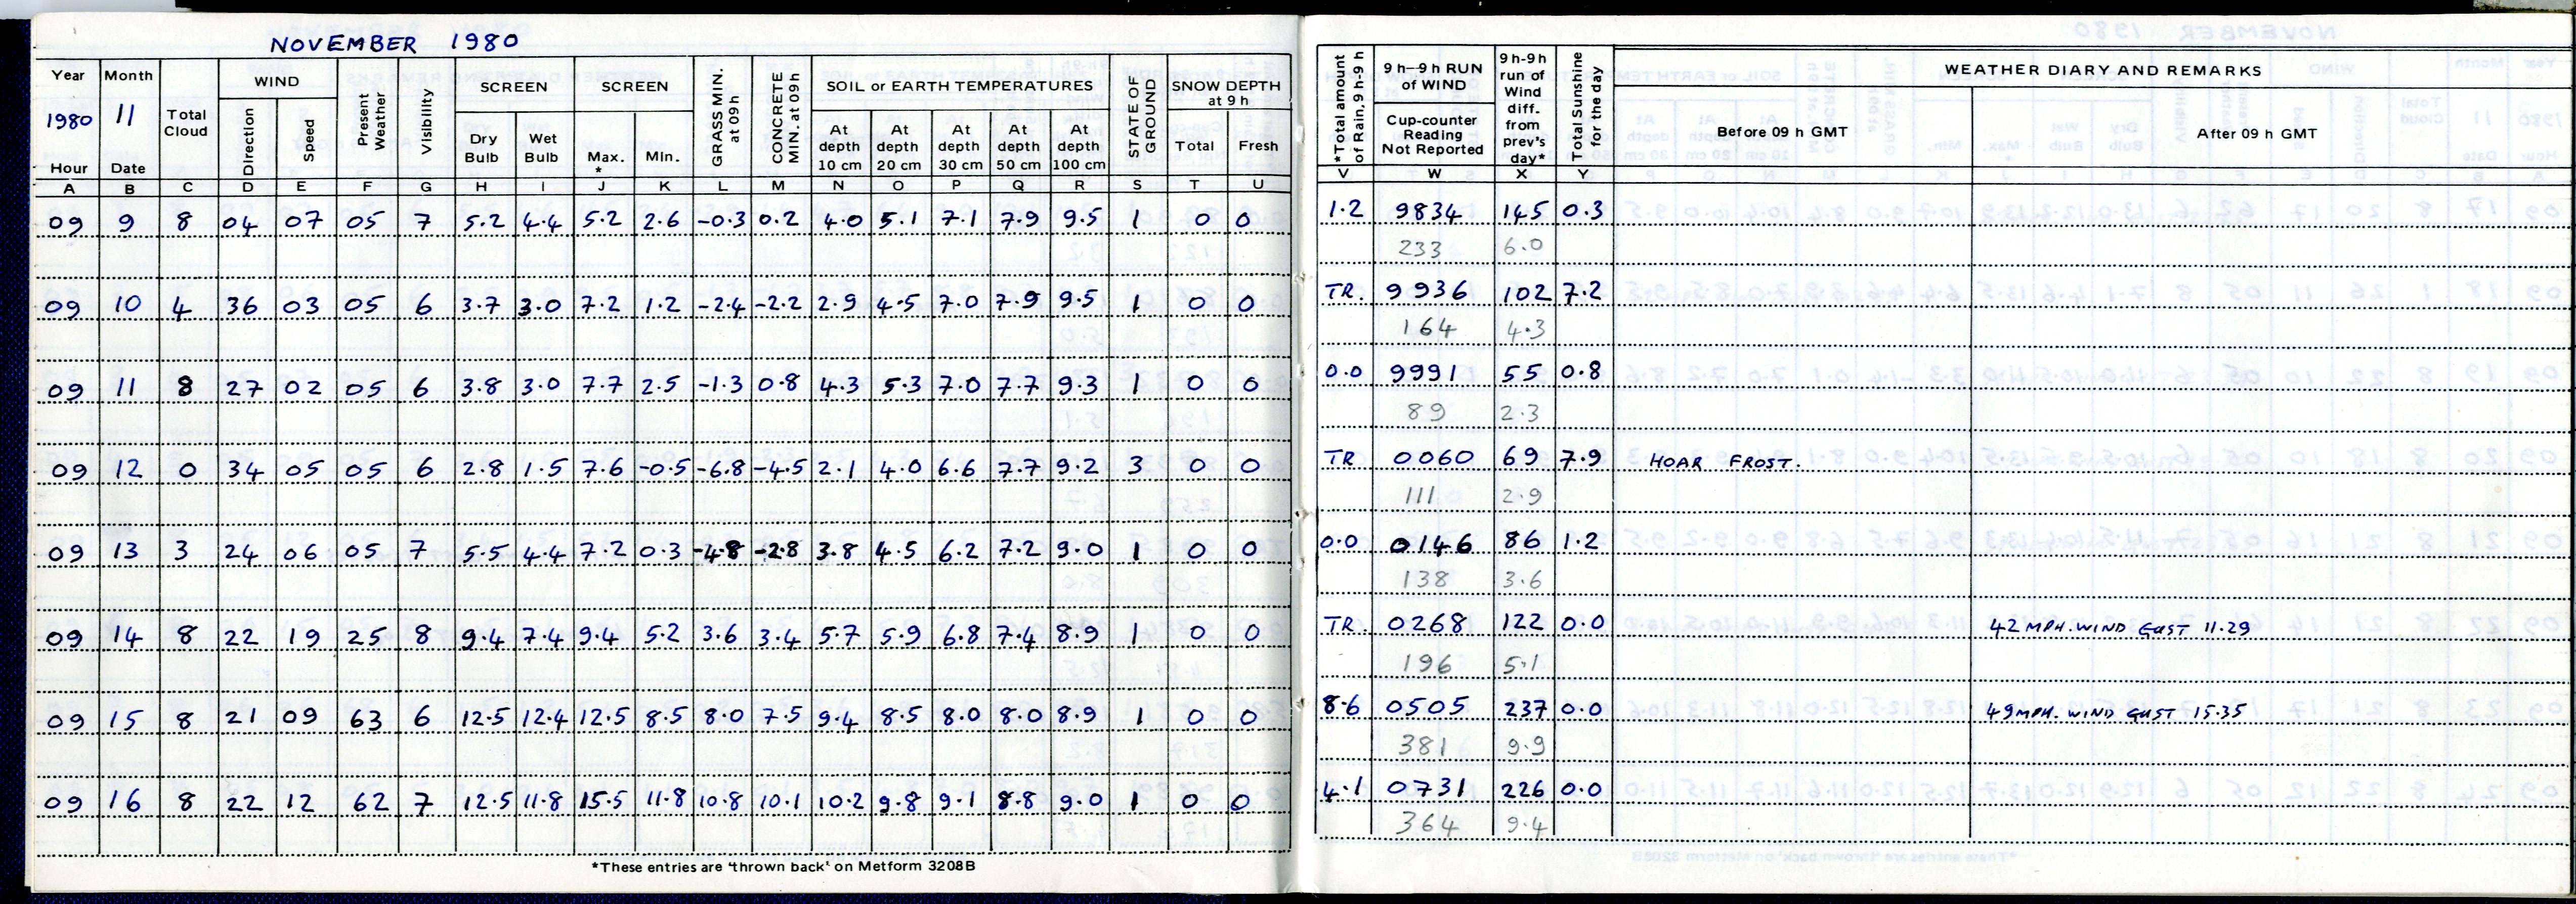 NOVEMBER 1980
Year Month Total Cloud WIND Present Weather Visibility SCREEN SCREEN GRASS MIN. at 09 h CONCRETE MIN. at 09h SOIL or EARTH TEMPERATURES STATE OF GROUND SNOW DEPTH at 9 h *Total amount of Rain, 9 h-9 h 9 h–9 h RUN of WIND 9 h-9 h run of Wind diff. from prev's day* Total Sunshine for the day WEATHER DIARY AND REMARKS
1980 11
Hour Date Direction Speed Dry Bulb Wet Bulb Max. * Min. At depth 10 cm At depth 20 cm At depth 30 cm At depth 50 cm At depth 100 cm Total Fresh Cup-counter Reading Not Reported Before 09 h GMT After 09 h GMT
A B C D E F G H I J K L M N O P Q R S T U V W X Y
09 9 8 04 07 05 7 5.2 4.4 5.2 2.6 -0.3 0.2 4.0 5.1 7.1 7.9 9.5 1 0 0 1.2 9834 145 0.3
233 6.0
09 10 4 36 03 05 6 3.7 3.0 7.2 1.2 -2.4 -2.2 2.9 4.5 7.0 7.9 9.5 1 0 0 TR. 9936 102 7.2
164 4.3
09 11 8 27 02 05 6 3.8 3.0 7.7 2.5 -1.3 0.8 4.3 5.3 7.0 7.7 9.3 1 0 0 0.0 9991 55 0.8
89 2.3
09 12 0 34 05 05 6 2.8 1.5 7.6 -0.5 -6.8 -4.5 2.1 4.0 6.6 7.7 9.2 3 0 0 TR 0060 69 7.9 HOAR FROST.
111 2.9
09 13 3 24 06 05 7 5.5 4.4 7.2 0.3 -4.8 -2.8 3.8 4.5 6.2 7.2 9.0 1 0 0 0.0 0146 86 1.2
138 3.6
09 14 8 22 19 25 8 9.4 7.4 9.4 5.2 3.6 3.4 5.7 5.9 6.8 7.4 8.9 1 0 0 TR. 0268 122 0.0 42 MPH. WIND GUST 11.29
196 5.1
09 15 8 21 09 63 6 12.5 12.4 12.5 8.5 8.0 7.5 9.4 8.5 8.0 8.0 8.9 1 0 0 8.6 0505 237 0.0 49 MPH. WIND GUST 15.35
381 9.9
09 16 8 22 12 62 7 12.5 11.8 15.5 11.8 10.8 10.1 10.2 9.8 9.1 8.8 9.0 1 0 0 4.1 0731 226 0.0
364 9.4
*These entries are 'thrown back' on Metform 3208B